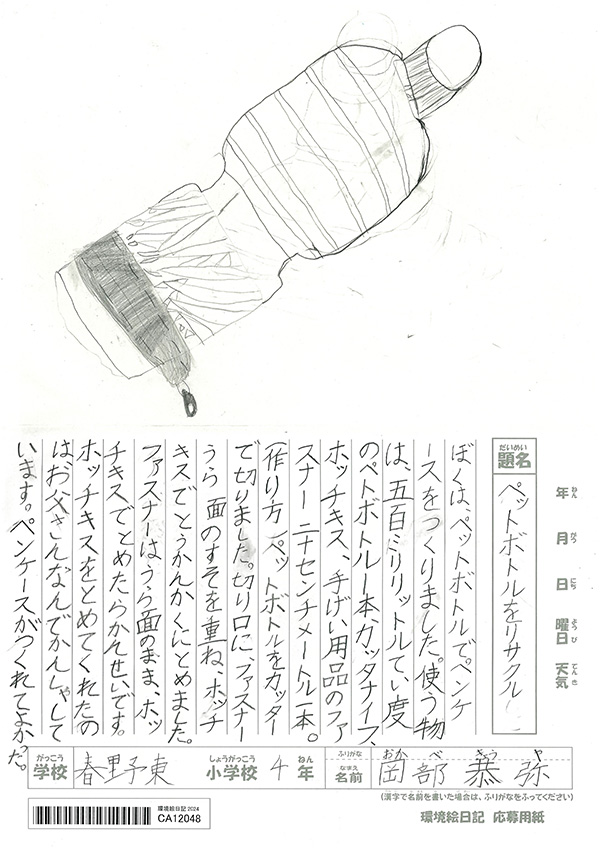 だいめい
題名
ペットボトルをリサクル!
年 ねん
月 がつ
日 にち
曜日 ようび
天気 てんき
ぼくは、ペットボトルでペンケ
ースをつくりました。使う物
は、五百ミリリットルてい度
のペトボトル一本、カッタナイフ、
ホッチキス、手げい用品のファ
スナー二十センチメートル一本。
(作り方)ペットボトルをカッター
で切りました。切り口に、ファスナー
うら面のすそを重ね、ホッチ
キスでとうかんかくにとめました。
ファスナーはうら面のまま、ホッ
チキスでとめたらかんせいです。
ホッチキスをとめてくれたの
はお父さんなんでかんしゃして
います。ペンケースがつくれてよかった。
がっこう しょうがっこう ねん ふりがな おかべ きょうや
学校 春野東 小学校 4 年 なまえ 名前 岡部 恭弥
(漢字で名前を書いた場合は、ふりがなをふってください)
環境絵日記 2024
CA12048
環境絵日記 応募用紙